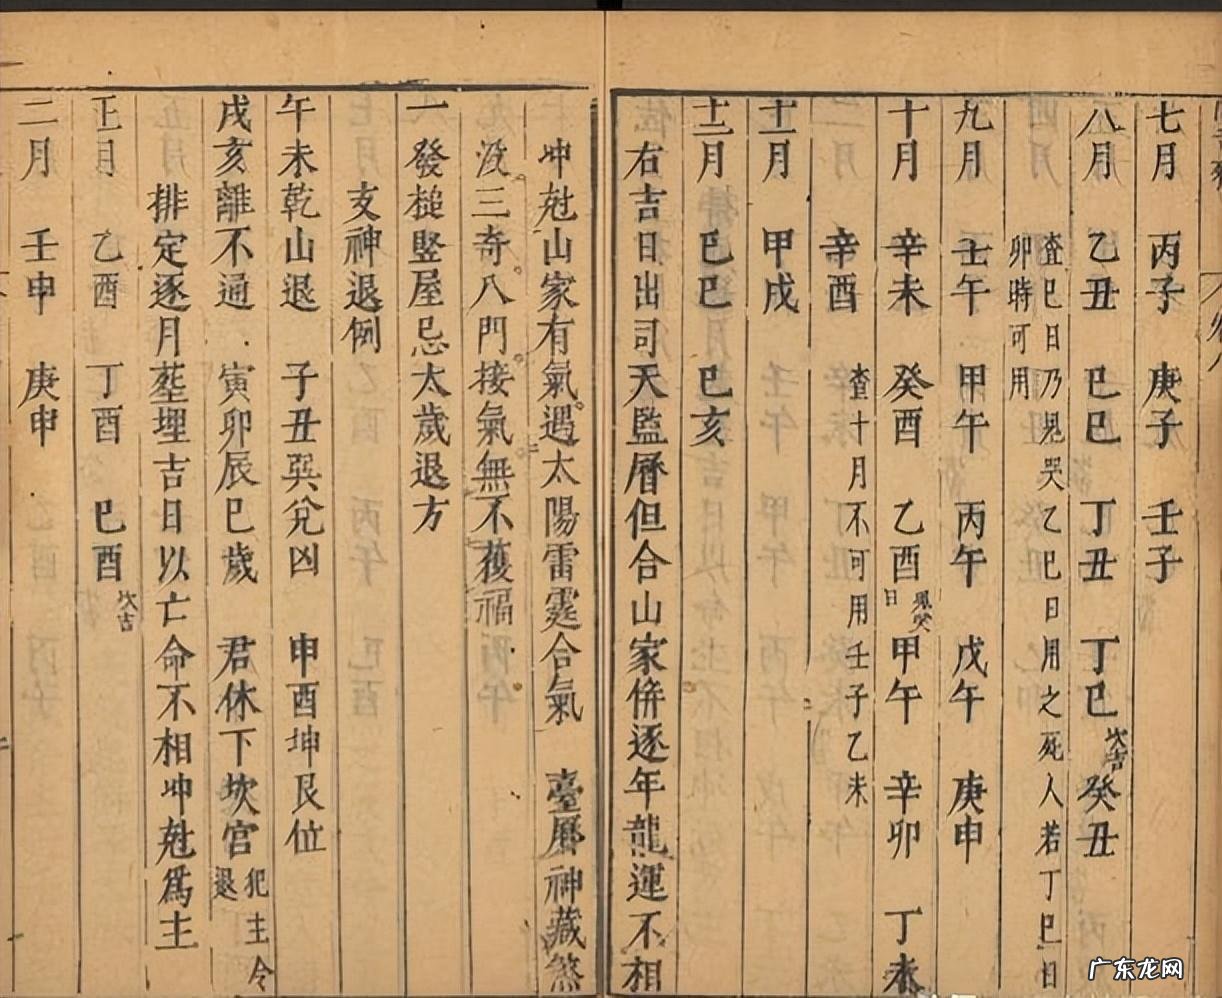 七月 丙子 庚子 壬子
八月 乙丑 己巳 丁丑 丁巳 次吉 癸丑
查巳日乃見哭乙巳日用之死人若丁巳日
卯時可用
九月 壬午 甲午 丙午 戊午 庚申
十月 辛未 癸酉 乙酉 鳳凰日 甲午 辛卯 丁未
查十月不可用壬子乙未
辛酉
十一月 甲戌
十二月 己巳 己亥
右吉日出司天監曆但合山家併逐年龍運不相
冲尅山家有氣遇太陽雷霆合氣 臺曆神藏煞
沒三奇八門接氣無不獲福
一發槌竪屋忌太歲退方
支神退例
午未乾山退 子丑巽兊凶 申酉坤艮位
戌亥離不通 寅卯辰巳歲 君休下坎宮 犯主令退
排定逐月塟埋吉日以亡命不相冲尅爲主
正月 乙酉 丁酉 己酉 次吉
二月 壬申 庚申
广东龙网